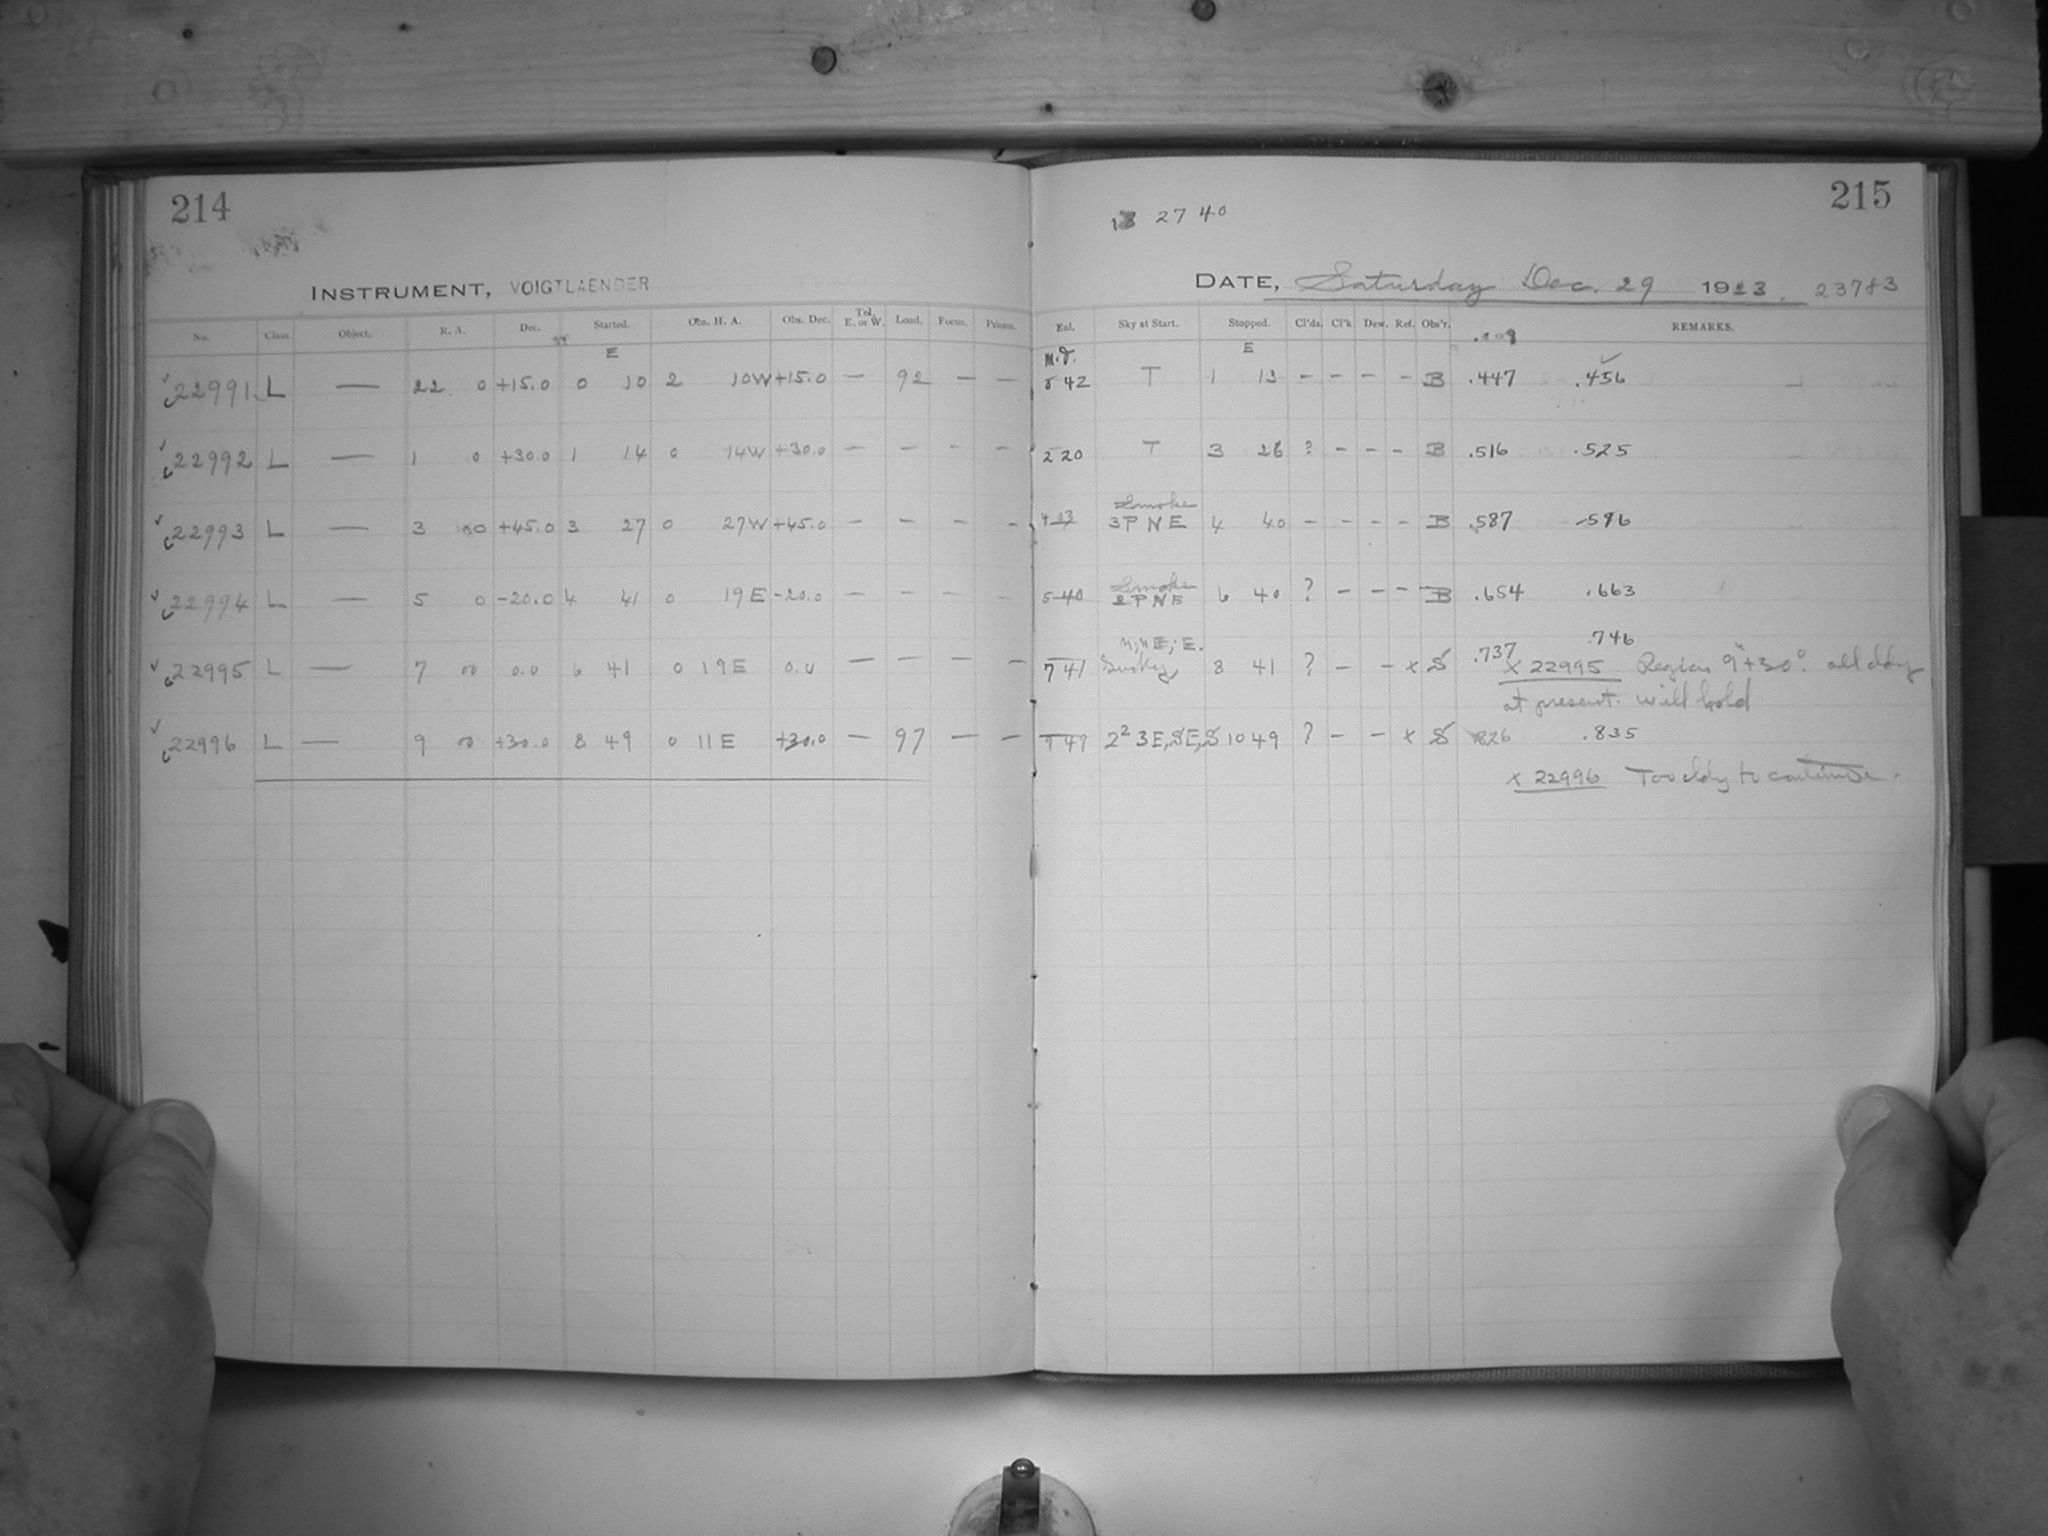 214
INSTRUMENT, VOIGTLAENDER
No. Class. Object. R. A. Dec. Started. Obs. H. A. Obs. Dec. Tel. E. or W. Load. Focus. Prisms.
E
22991 L — 22 0 +15.0 0 10 2 10W +15.0 — 92 — —
22992 L — 1 0 +30.0 1 14 0 14W +30.0 — — — —
22993 L — 3 0 +45.0 3 27 0 27W +45.0 — — — —
22994 L — 5 0 -20.0 4 41 0 19E -20.0 — — — —
22995 L — 7 00 0.0 6 41 0 19E 0.0 — — — —
22996 L — 9 00 +30.0 8 49 0 11E +30.0 — 97 — —
215
27 40
DATE, Saturday Dec. 29 1923. 23783
Sky at Start. Stopped. Cl'ds. Cl'k. Dew. Ref. Obs'r. REMARKS.
E .009
42 T 1 13 — — — — B .447 .456
2 20 T 3 26 ? — — — B .516 .525
Smoke
4 03 3 P N E 4 40 — — — — B .587 .596
Smoke
5 40 2 P N E 6 40 ? — — — B .654 .663
N; NE; E.
.737 .746
7 41 8 41 ? — — x S x 22995 Region 9h +30°. all cldy
at present. will hold
9 49 2² 3E, SE, S 10 49 ? — — x S .826 .835
x 22996 Too cldy to continue.